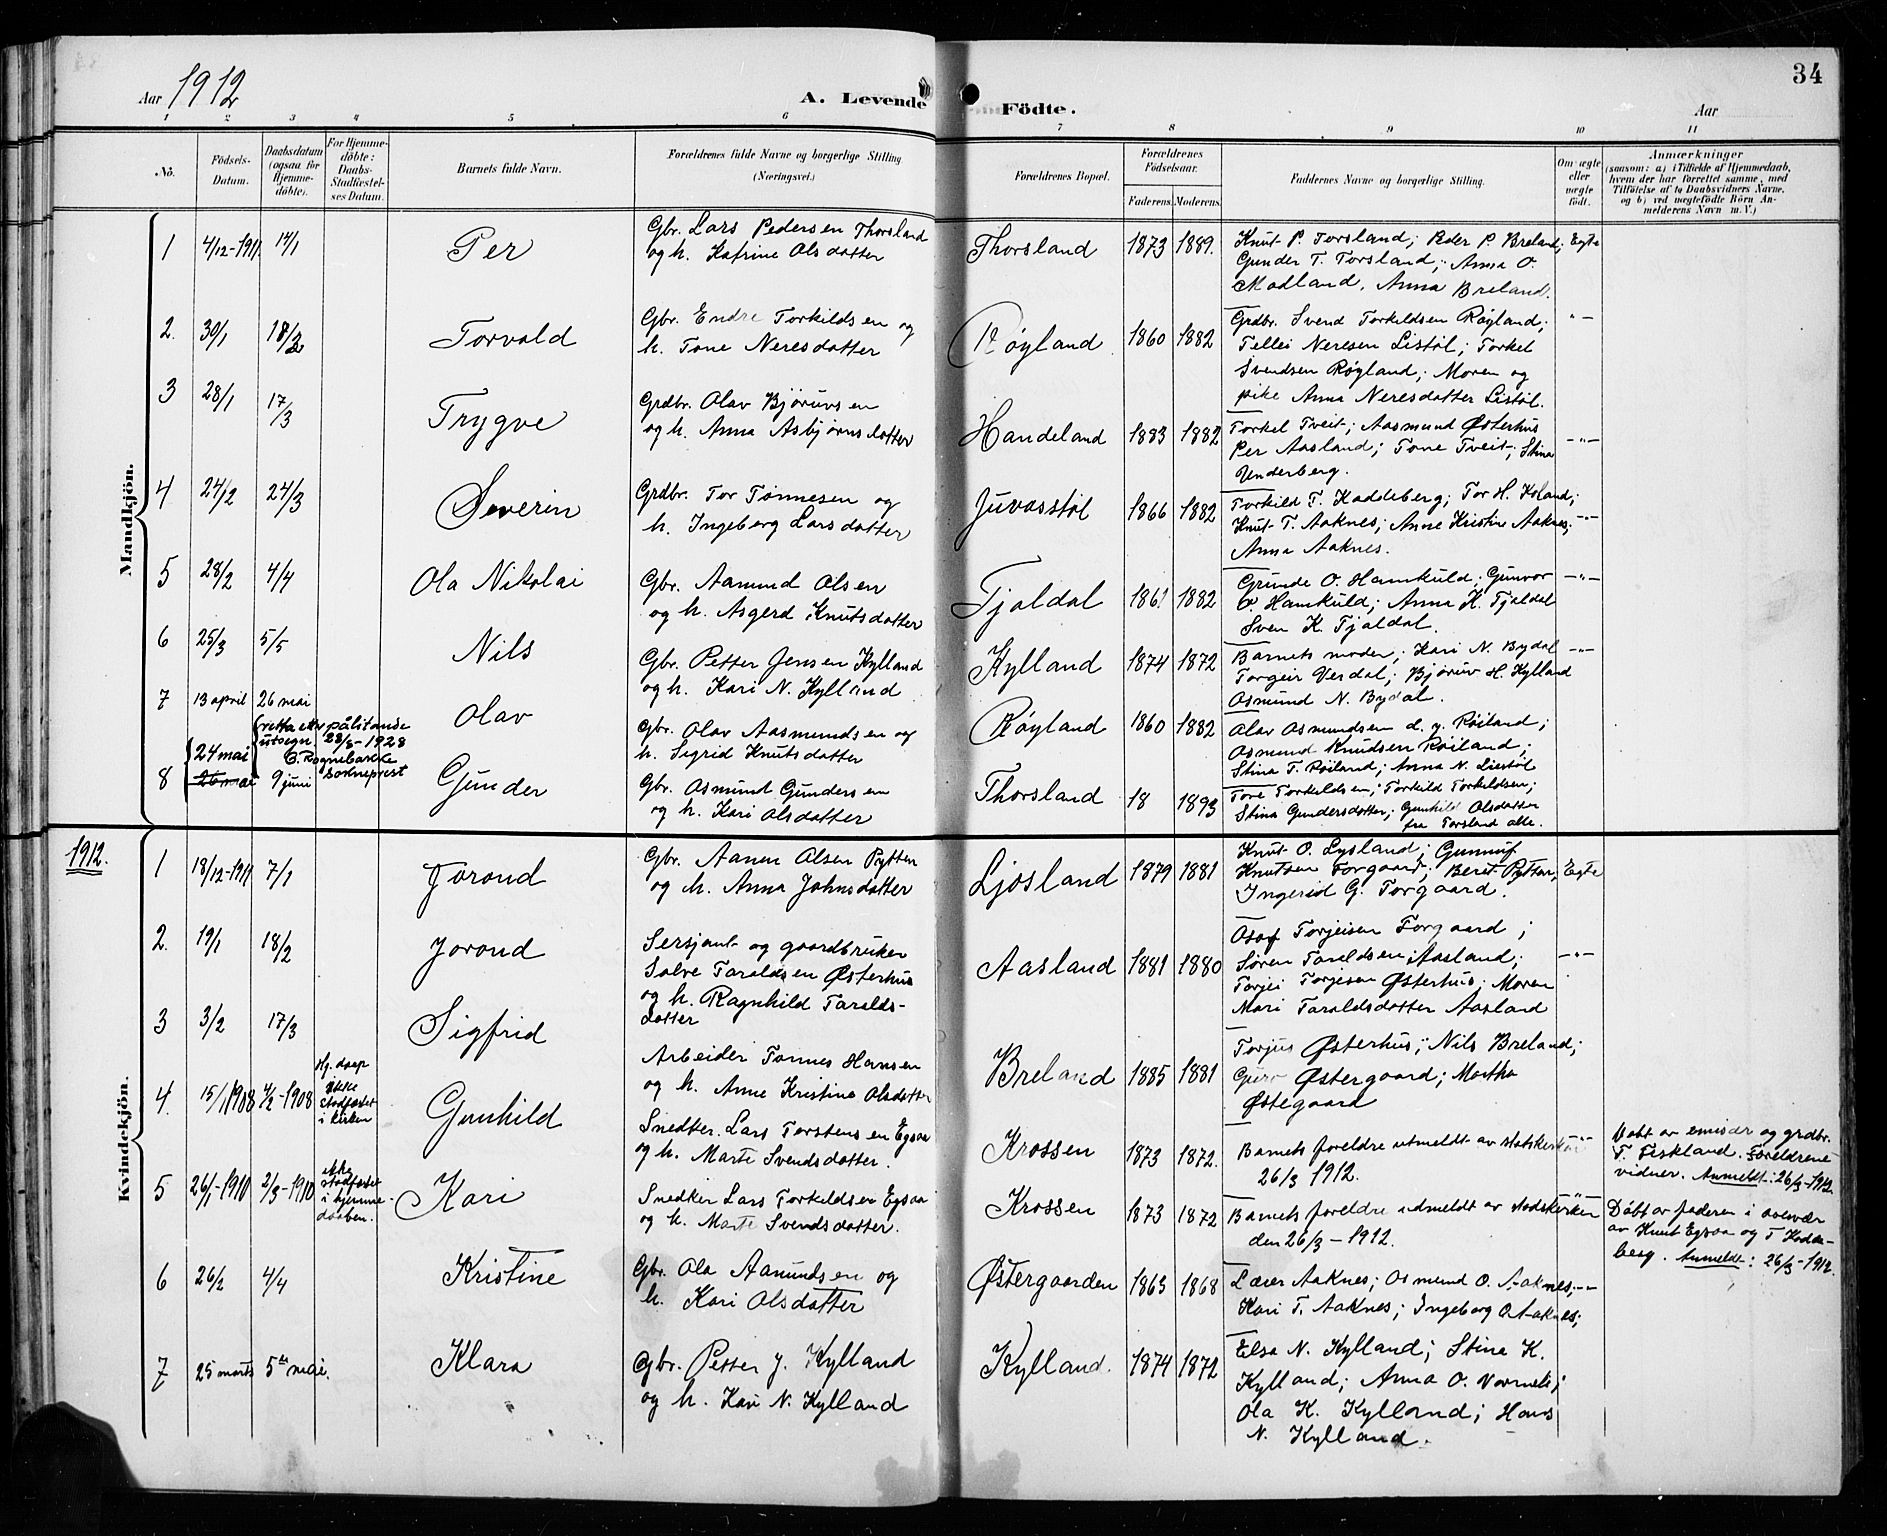 Aar 1912
A. Levende Födte.
Aar
34
1 2 3 4 5 6 7 8 9 10 11
No.
Födsels-Datum.
Daabsdatum (ogsaa for Hjemme-döbte).
For Hjemme-döbte: Daabs-Stadfæstel-ses Datum.
Barnets fulde Navn.
Forældrenes fulde Navne og borgerlige Stilling (Næringsvei.)
Forældrenes Bopæl.
Forældrenes Födselsaar.
Faderens Moderens
Faddernes Navne og borgerlige Stilling.
Om ægte eller uægte födt.
Anmærkninger
(saasom: a) i Tilfælde af Hjemmedaab,
hvem der har forrettet samme, med
Tilföielse af to Daabsvidners Navne.
og b) ved uægtefödte Börn An-
melderens Navn m. V.)
Mandkjön.
1 4/12-1911. 14/1 Per
Gbr. Lars Pedersen Thorsland
og h. Katrine Olsdatter
Thorsland 1873 1889.
Knut P. Torsland; Peder P. Breland; Egte
Gunder T. Torsland; Anna O.
Modland, Anna Breland.
2. 30/1 18/2 Torvald
Gbr. Endre Torkildsen og
h. Tone Neresdatter
Røyland 1860 1882
Grdbr. Svend Torkildsen Røyland; -"-
Tellei Neresen Listøl; Torkel
Svendsen Røyland; Moren og
pike Anna Neresdatter Listøl.
3 28/1 17/3 Trygve
Grdbr. Olav Bjøruvsen
og h. Anna Asbjørnsdatter
Handeland 1883 1882
Torkel Tveit; Aasmund Østerhus
Per Aasland; Tone Tveit; Stina -"-
Underberg.
4 24/2 24/3 Severin
Grdbr. Tor Tønnesen og
h. Ingeberg Larsdatter
Juvasstøl 1866 1882
Torkild T. Haddeberg; Tor H. Koland;
Knut T. Aaknes; Anne Kristine Aaknes; -"-
Anna Aaknes.
5 28/2 4/4 Ola Nikolai
Gbr. Aamund Olsen
og h. Asgerd Knutsdatter
Tjaldal 1861 1882
Grunde O. Hamkuld; Gunvor -"-
O. Hamkuld; Anna K. Tjaldal
Sven K. Tjaldal.
6 25/3 5/5 Nils
Gbr. Petter Jensen Kylland
og h. Kari N. Kylland
Kylland 1874 1872
Barnets moder; Kari N. Bydal -"-
Torgeir Verdal; Bjøruv H. Kylland
Osmund N. Bydal.
7 13 april 26 mai Olav
Gbr. Olav Aasmundsen og
h. Sigrid Knutsdatter
Røyland 1860 1882
Olav Osmundsen d. y. Røiland;
Osmund Knudsen Røiland;
Stina T. Røiland; Anna N. Liestøl
retta etter pålitande
utsegn. 28/8-1928
B. Rognebakke
sokneprest
24 mai
8 26 mai 9 juni Gunder
Gbr. Osmund Gundersen
og h. Kari Olsdatter
Thorsland 18 1893
Tone Torkildsen; Torkild Torkildsen;
Stina Gundersdatter; Gunhild Olsdatter
fra Torsland alle.
1912.
Kvindekjön.
1 18/12-1911 7/1 Jorond
Gbr. Aanen Olsen Pytten
og h. Anna Johnsdatter
Ljosland 1879 1881
Knut O. Lysland; Gunnuf
Knutsen Torgaard; Beret Pytten; Egte
Ingerid G. Torgaard.
2. 19/1 18/2 Jorond
Sersjant og gaardbruker
Salve Taraldsen Østerhus
og h. Ragnhild Taralds-
datter
Aasland 1881 1880
Osof Torjeisen Torgaard;
Søren Taraldsen Aasland; -"-
Torjei Torjeisen Østerhus; Moren
Mari Taraldsdatter Aasland
3 3/2 17/3 Sigfrid
Arbeider Tønnes Hansen
og h. Anne Kristine Olsdatter
Breland 1885 1881
Torjus Østerhus; Nils Breland;
Guro Østergaard; Martha
Østegaard
4. 15/1 1908 4/2-1908
Hj. daap
ikke
stadfæstet
i kirken
Gunhild
Snedker. Lars Torstensen Egsaa
og h. Marte Svendsdatter.
Krossen 1873 1872.
Barnets foreldre utmeldt av statskirken
26/3 1912.
Døbt av emisær og grdbr.
T. Fiskland. Foreldrene
vidner. Anmeldt: 26/3-1912.
5 26/1-1910 2/3-1910
ikke
stadfæstet
i hjemme-
daaben.
Kari
Snedker Lars Torkildsen Egsaa
og h. Marte Svendsdatter.
Krossen 1873 1872
Barnets foreldre udmeldt av statskirken
den 26/3-1912.
Døbt av faderen i overvær
av Knut Egsaa og T Hodde-
berg. Anmeldt: 26/3-1912.
6 26/2 4/4 Kristine
Gbr. Ola Aanundsen og
h. Kari Olsdatter
Østergaarden 1863 1868
Lærer Aaknes; Osmund O. Aaknes; -"-
Kari T. Aaknes; Ingeborg O Aaknes;
7 25 marts 5te mai. Klara
Gbr. Petter J. Kylland
og h. Kari N. Kylland
Kylland. 1874 1872
Elsa N. Kylland; Stina K.
Kylland; Anna O. Vormeli;
Ola K. Kylland; Hans
N. Kylland.